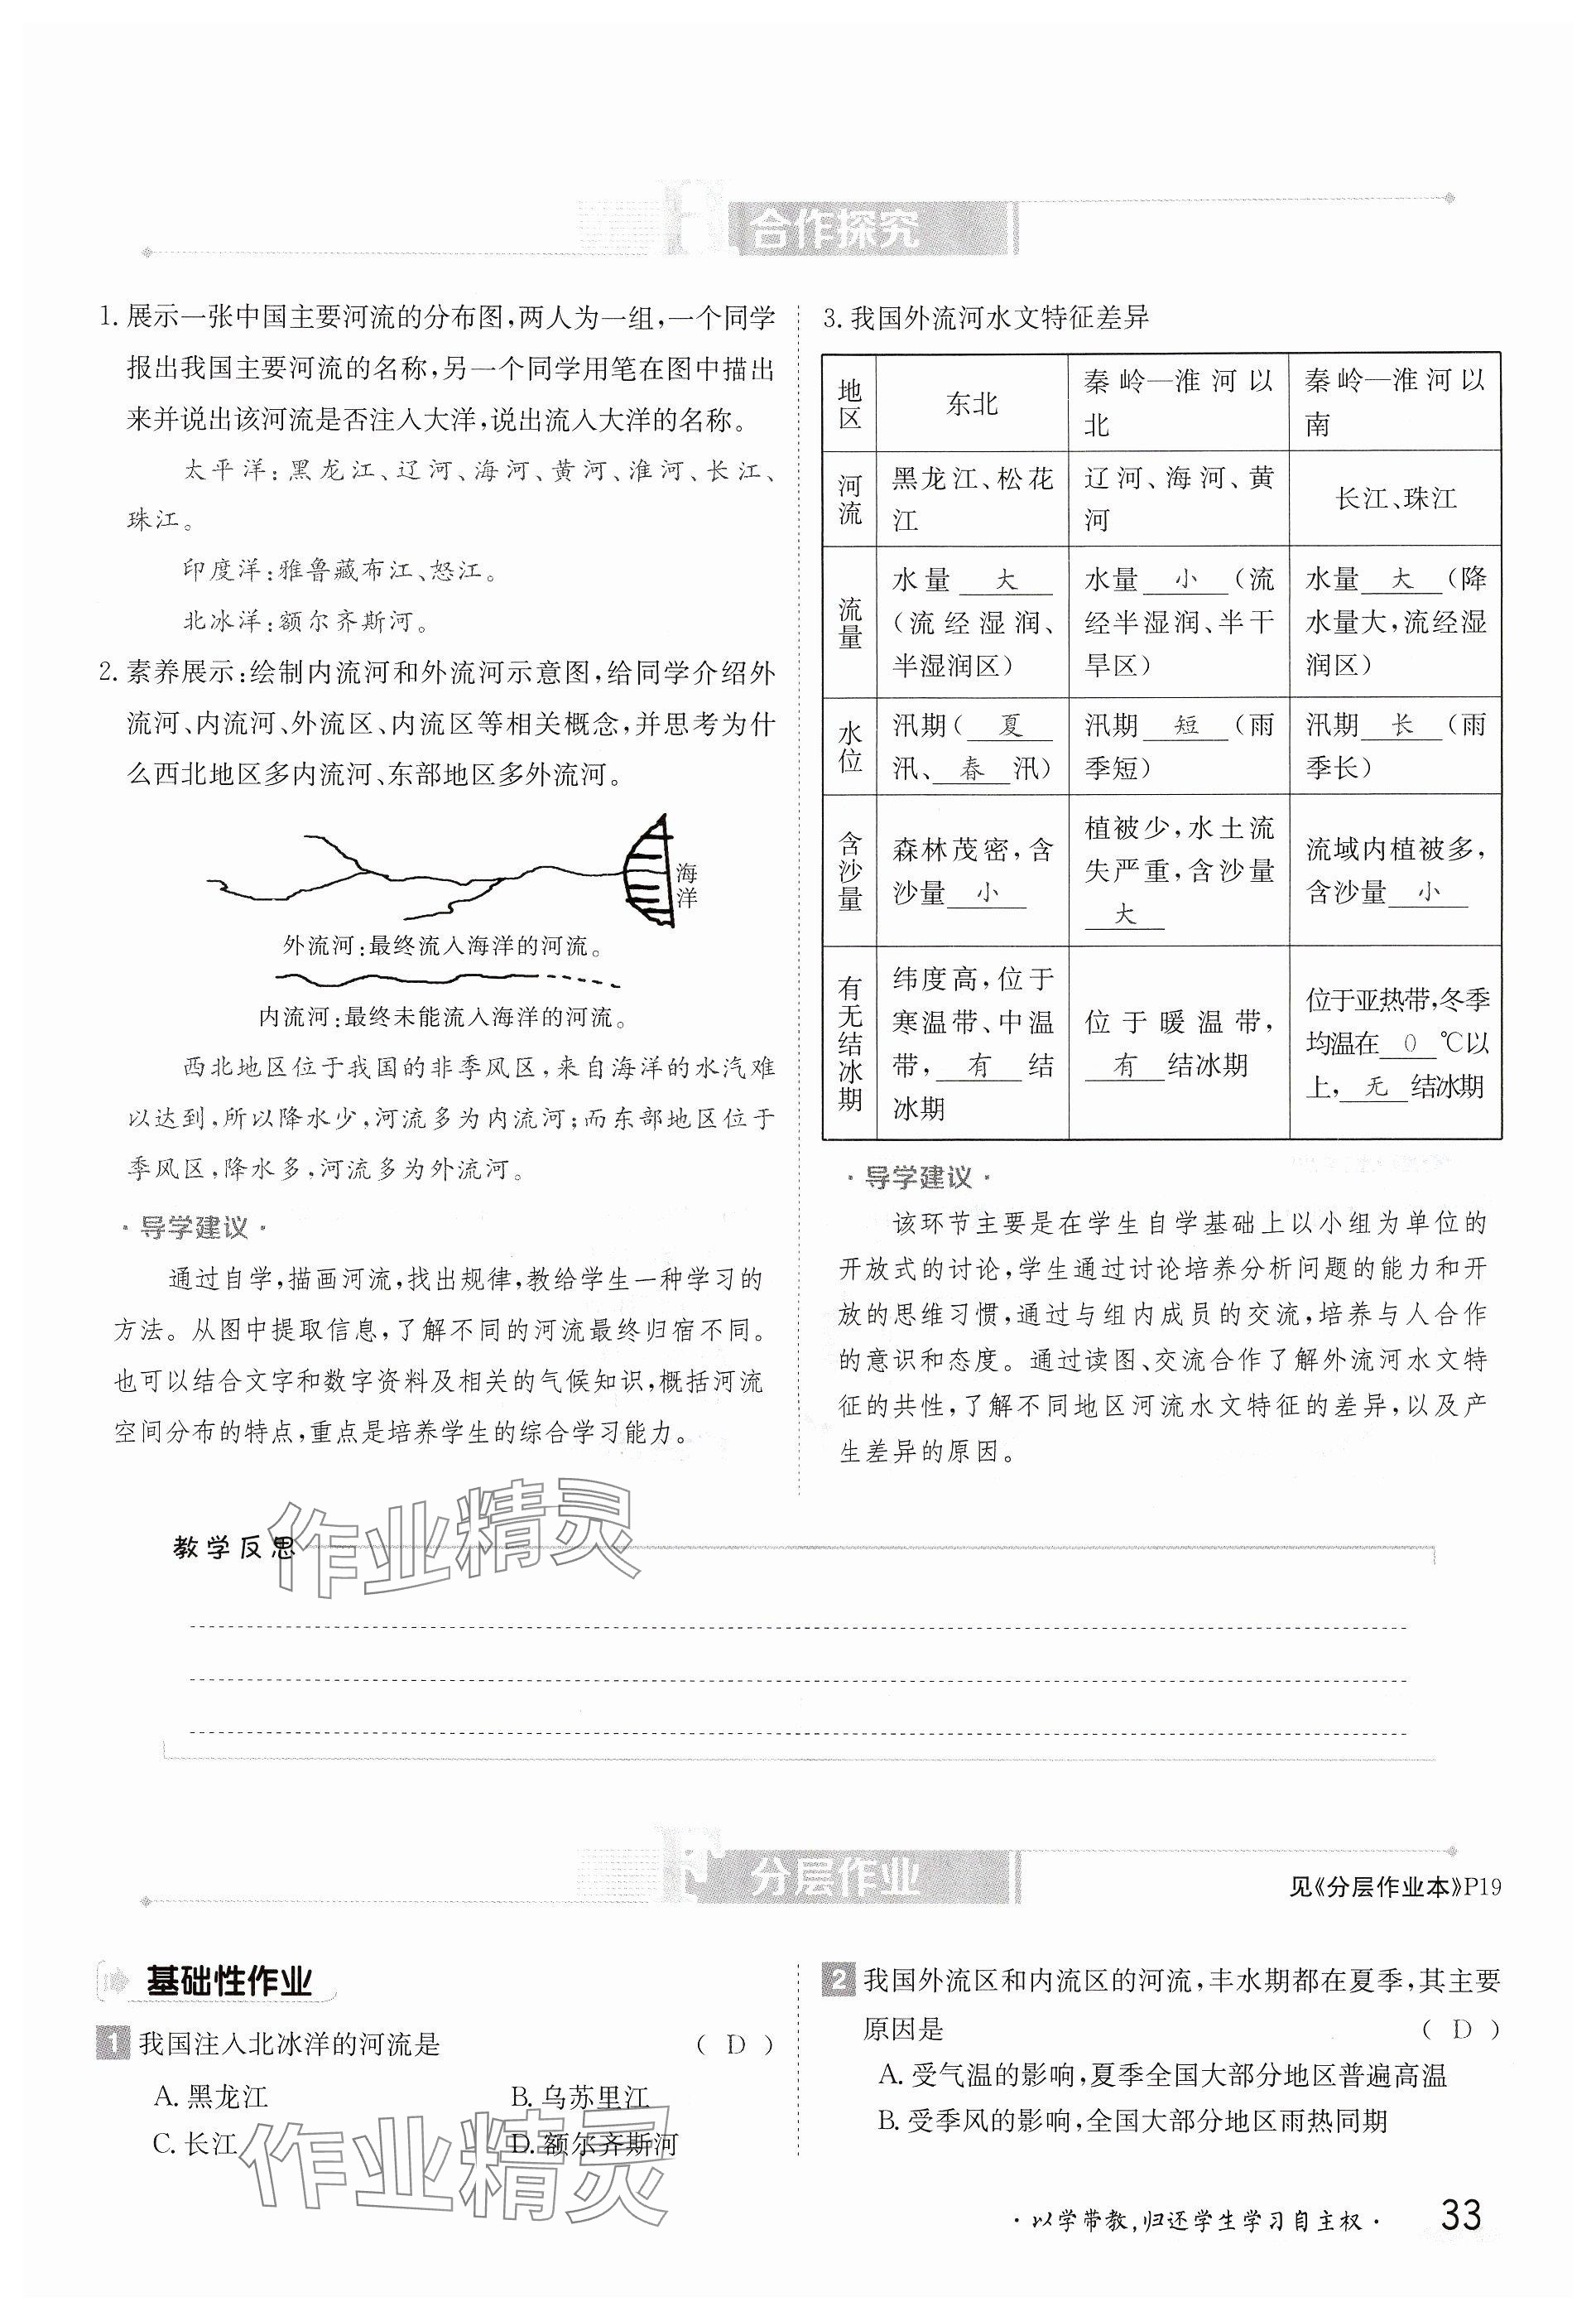 合作探究
1. 展示一张中国主要河流的分布图,两人为一组,一个同学
报出我国主要河流的名称,另一个同学用笔在图中描出
来并说出该河流是否注入大洋,说出流入大洋的名称。
太平洋:黑龙江、辽河、海河、黄河、淮河、长江、
珠江。
印度洋:雅鲁藏布江、怒江。
北冰洋:额尔齐斯河。
2. 素养展示:绘制内流河和外流河示意图,给同学介绍外
流河、内流河、外流区、内流区等相关概念,并思考为什
么西北地区多内流河、东部地区多外流河。
海洋
外流河:最终流入海洋的河流。
内流河:最终未能流入海洋的河流。
西北地区位于我国的非季风区,来自海洋的水汽难
以达到,所以降水少,河流多为内流河;而东部地区位于
季风区,降水多,河流多为外流河。
·导学建议·
通过自学,描画河流,找出规律,教给学生一种学习的
方法。从图中提取信息,了解不同的河流最终归宿不同。
也可以结合文字和数字资料及相关的气候知识,概括河流
空间分布的特点,重点是培养学生的综合学习能力。
3. 我国外流河水文特征差异
地区 东北 秦岭—淮河以北 秦岭—淮河以南
河流 黑龙江、松花江 辽河、海河、黄河 长江、珠江
流量 水量 大 (流经湿润、半湿润区) 水量 小 (流经半湿润、半干旱区) 水量 大 (降水量大,流经湿润区)
水位 汛期( 夏 汛、 春 汛) 汛期 短 (雨季短) 汛期 长 (雨季长)
含沙量 森林茂密,含沙量 小 植被少,水土流失严重,含沙量 大 流域内植被多,含沙量 小
有无结冰期 纬度高,位于寒温带、中温带, 有 结冰期 位于暖温带, 有 结冰期 位于亚热带,冬季均温在 0 ℃以上, 无 结冰期
·导学建议·
该环节主要是在学生自学基础上以小组为单位的
开放式的讨论,学生通过讨论培养分析问题的能力和开
放的思维习惯,通过与组内成员的交流,培养与人合作
的意识和态度。通过读图、交流合作了解外流河水文特
征的共性,了解不同地区河流水文特征的差异,以及产
生差异的原因。
教学反思
作业精灵
分层作业
见《分层作业本》P19
基础性作业
1 我国注入北冰洋的河流是 ( D )
A. 黑龙江 B. 乌苏里江
C. 长江 D. 额尔齐斯河
作业精灵
2 我国外流区和内流区的河流,丰水期都在夏季,其主要
原因是 ( D )
A. 受气温的影响,夏季全国大部分地区普遍高温
B. 受季风的影响,全国大部分地区雨热同期
·以学带教,归还学生学习自主权· 33